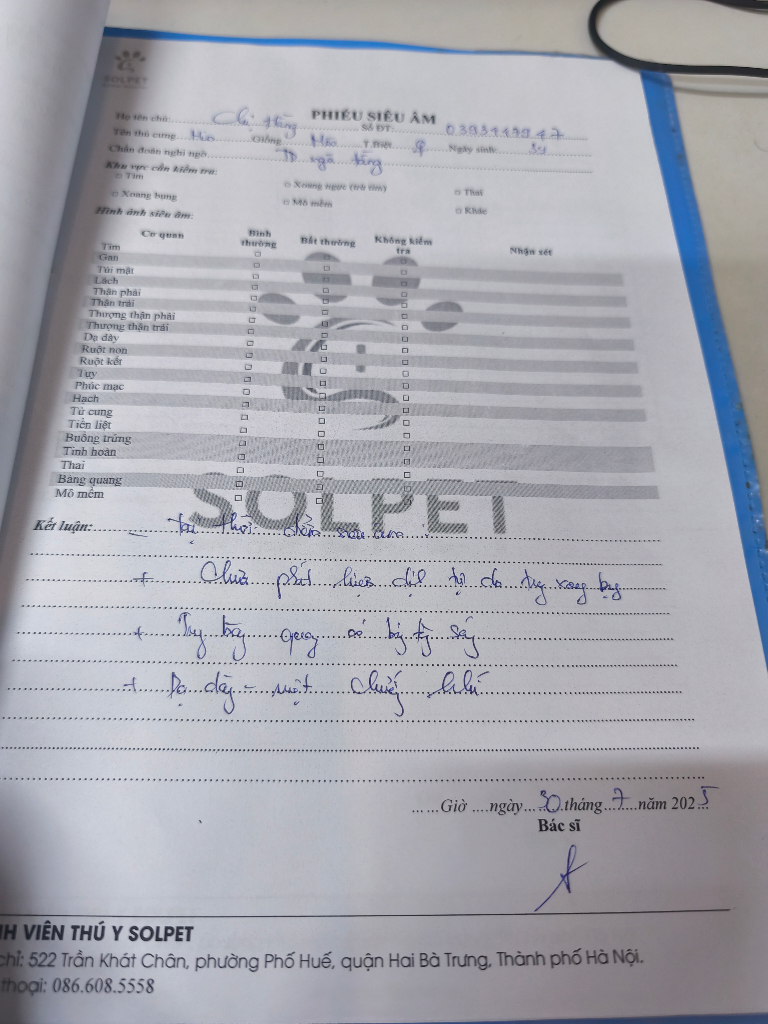 SOLPET
PHIẾU SIÊU ÂM
Họ tên chủ: Chị Hằng Số ĐT:
Tên thú cưng Giống Mèo T.Biệt ♀ Ngày sinh: 3y
Chẩn đoán nghi ngờ TD ngã tầng
Khu vực cần kiểm tra:
□ Tim □ Xoang ngực (trừ tim) □ Thai
□ Xoang bụng □ Mô mềm □ Khác
Hình ảnh siêu âm:
Cơ quan Bình thường Bất thường Không kiểm tra Nhận xét
Tim □ □ □
Gan □ □ □
Túi mật □ □ □
Lách □ □ □
Thận phải □ □ □
Thận trái □ □ □
Thượng thận phải □ □ □
Thượng thận trái □ □ □
Dạ dày □ □ □
Ruột non □ □ □
Ruột kết □ □ □
Tụy □ □ □
Phúc mạc □ □ □
Hạch □ □ □
Tử cung □ □ □
Tiền liệt □ □ □
Buồng trứng □ □ □
Tinh hoàn □ □ □
Thai □ □ □
Bàng quang □ □ □
Mô mềm □ □ □
SOLPET
Kết luận: - tại thời điểm siêu âm:
+ Chưa phát hiện dịch tự do trong xoang bụng
+ Trong bàng quang có
+ Dạ dày - ruột chướng khí
......Giờ ....ngày 30 tháng 7 năm 2025
Bác sĩ
H VIÊN THÚ Y SOLPET
chỉ: 522 Trần Khát Chân, phường Phố Huế, quận Hai Bà Trưng, Thành phố Hà Nội.
thoại: 086.608.5558